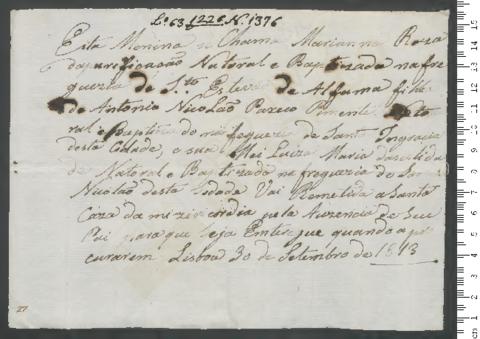 Lº 63 1226. N. 1376
Esta Menina se Chama Marianna Roza
da purificação Natural e Baptizada na fre
guezia de S.to Estevão de Alfama filha
de Antonio Nicoláo Pimentel Nato
ral e Baptizado na freguezia de Santa Ingracia
desta Cidade, e sua Mei Luiza Maria da
de Natoral e Baptizada na freguezia de Sam
Nuclao desta Sidade Vai Remetida a Santa
Caza da mizericordia pela Auzencia de Seu
Pai para que Seja Entregue quando a pr
curarem Lisboa 30 de Setembro de 1813